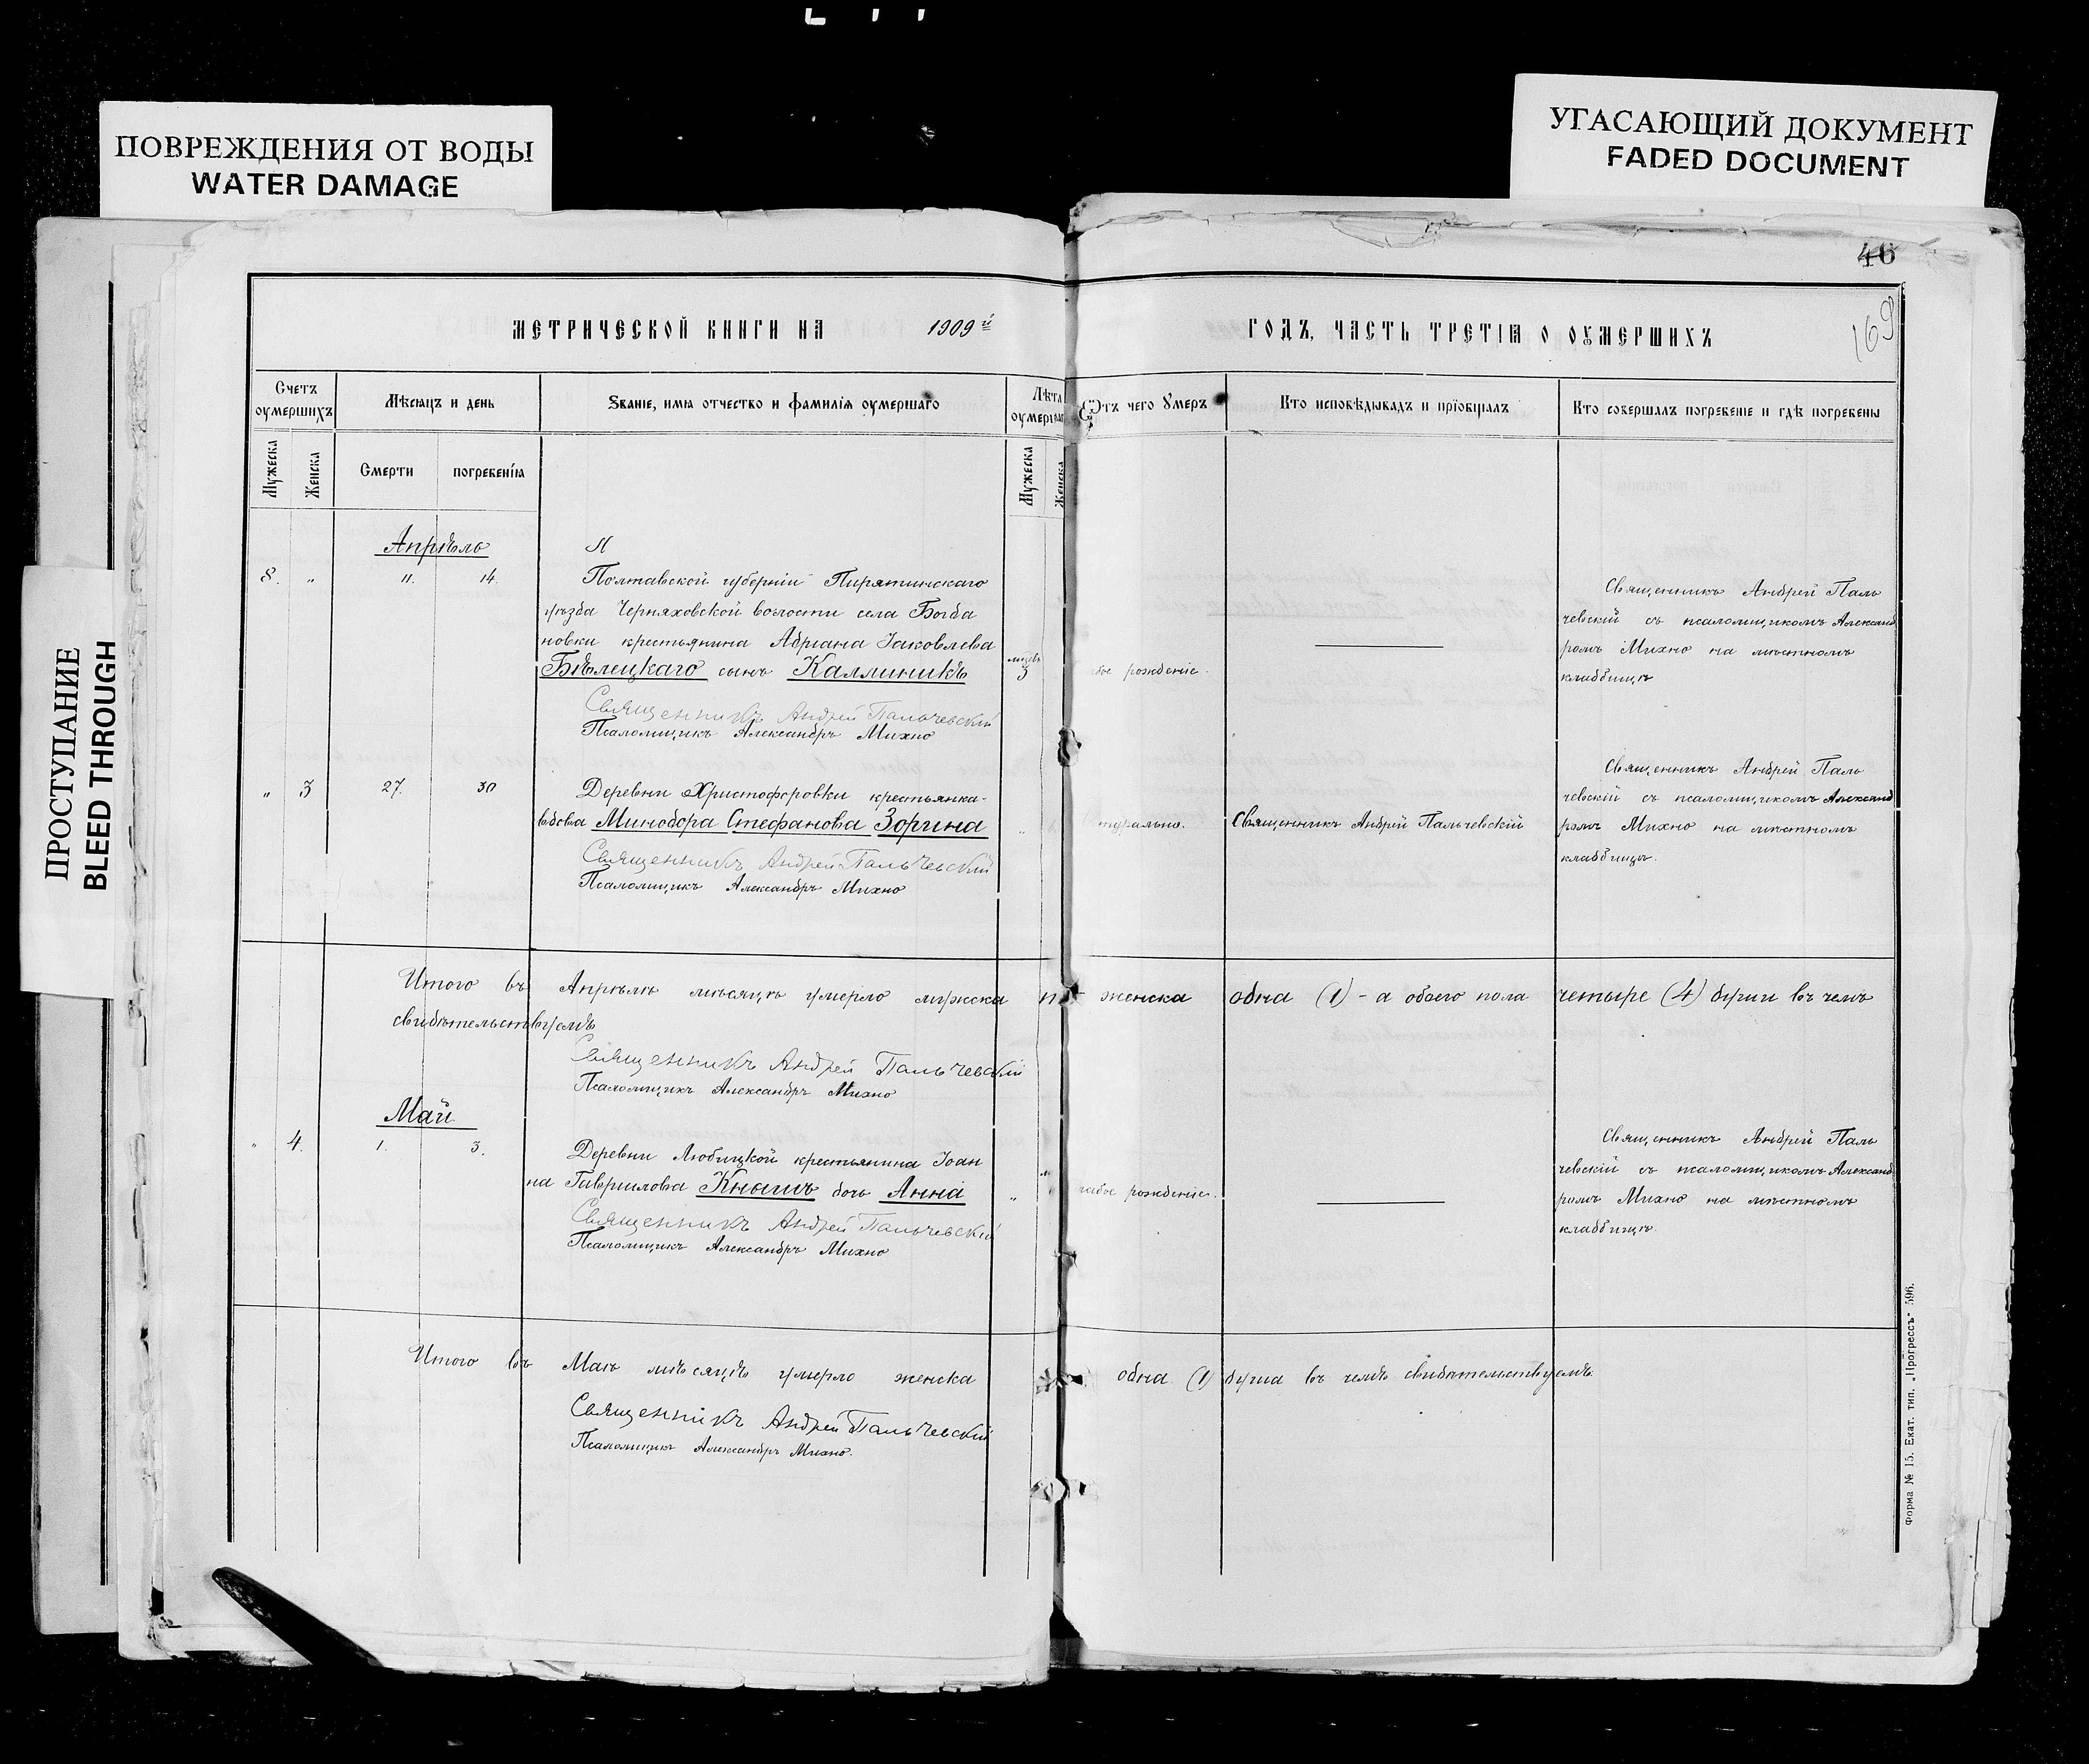 ПОВРЕЖДЕНИЯ ОТ ВОДЫ
WATER DAMAGE
УГАСАЮЩИЙ ДОКУМЕНТ
FADED DOCUMENT
ПРОСТУПАНИЕ
BLEED THROUGH
46
169
МЕТРИЧЕСКОЙ КНИГИ НА 1909й ГОДЪ, ЧАСТЬ ТРЕТІЯ О ОУМЕРШИХЪ
Счетъ оумершихъ
Мѣсяцъ и день
Званіе, имя отчество и фамилія оумершаго
Лѣта
Отъ чего Умеръ
Кто исповѣдывалъ и пріобщалъ
Кто совершалъ погребеніе и гдѣ погребены
Мужеска Женска Смерти погребенія Мужеска Женска
Апрѣль
8. „ 11. 14. Полтавской губерніи Пирятинскаго
уѣзда Черняховской волости села Богда
новки крестьянина Адріана Іаковлева
Бѣлецкаго сынъ Каллиникъ 3 рожденіе.
Священникъ Андрей Пальчевскій
Псаломщикъ Александръ Михно
Священникъ Андрей Паль
чевскій съ псаломщикомъ Александ
ромъ Михно на мѣстномъ
кладбищѣ
„ 3 27. 30 Деревни Христофоровки крестьянка-
вдова Минодора Стефанова Зорина „
Священникъ Андрей Пальчевскій
Священникъ Андрей Пальчевскій
Псаломщикъ Александръ Михно
Священникъ Андрей Паль
чевскій съ псаломщикомъ Александ
ромъ Михно на мѣстномъ
кладбищѣ.
Итого въ Апрѣлѣ мѣсяцѣ умерло мужска женска одна (1) - а обоего пола четыре (4) души въ чемъ
свидѣтельствуемъ
Священникъ Андрей Пальчевскій
Псаломщикъ Александръ Михно
Май
„ 4. 1. 3. Деревни Любицкой крестьянина Іоан
на Гаврилова Кнышъ дочь Анна „ рожденіе.
Священникъ Андрей Пальчевскій
Псаломщикъ Александръ Михно
Священникъ Андрей Паль
чевскій съ псаломщикомъ Александ
ромъ Михно на мѣстномъ
кладбищѣ.
Итого въ Маѣ мѣсяцѣ умерло женска одна (1) душа въ чемъ свидѣтельствуемъ
Священникъ Андрей Пальчевскій
Псаломщикъ Александръ Михно.
Форма № 15. Екат. тип. „Прогрессъ" 596.